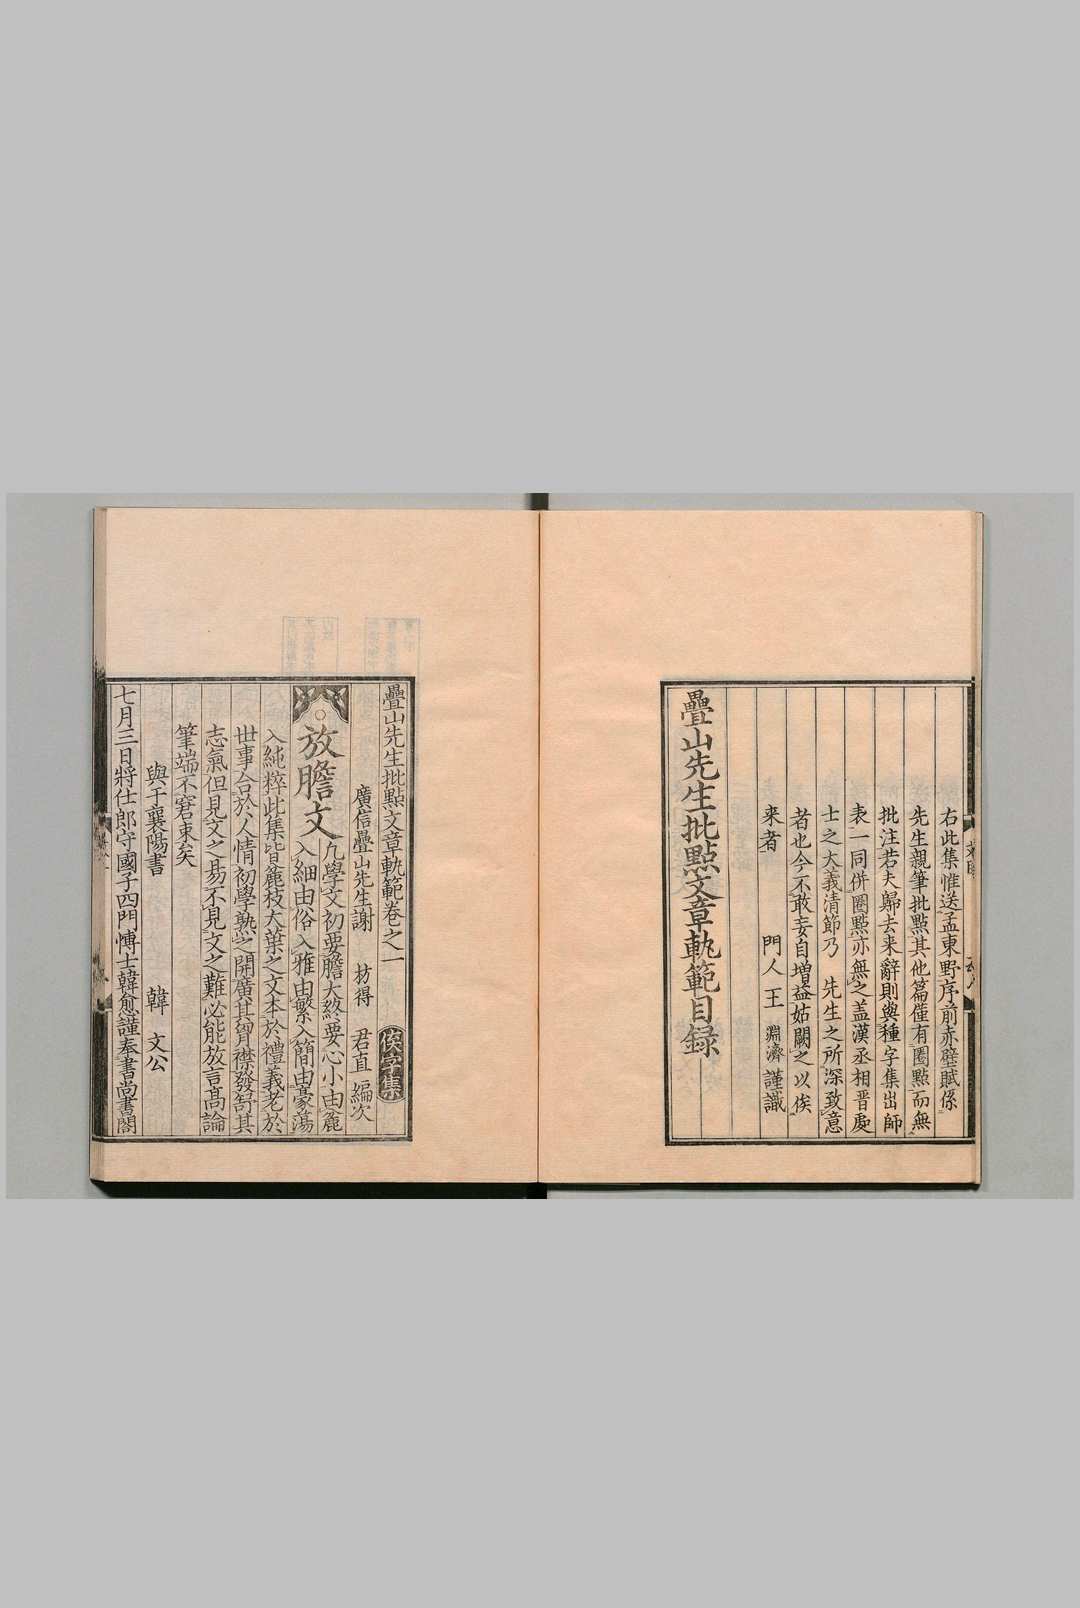 右此集惟送孟東野序前赤壁賦係
先生親筆批點其他篇僅有圏點而無
批注若夫歸去来辭則與種字集出師
表一同併圏點亦無之盖漢丞相晋處
士之大義清節乃 先生之所深致意
者也今不敢妄自增益姑闕之以俟
来者 門人王 淵濟 謹識
疊山先生批點文章軌範目録
疊山先生批點文章軌範卷之一 侯字集
廣信疊山先生謝 枋得 君直 編次
放膽文 凡學文初要膽大終要心小由麄
入細由俗入雅由繁入簡由豪蕩
入純粹此集皆麄枝大葉之文本於禮義老於
世事合於人情初學熟之開廣其胷襟發舒其
志氣但見文之易不見文之難必能放言髙論
筆端不窘束矣
與于襄陽書 韓 文公
七月三日將仕郎守國子四門愽士韓愈謹奉書尚書閣